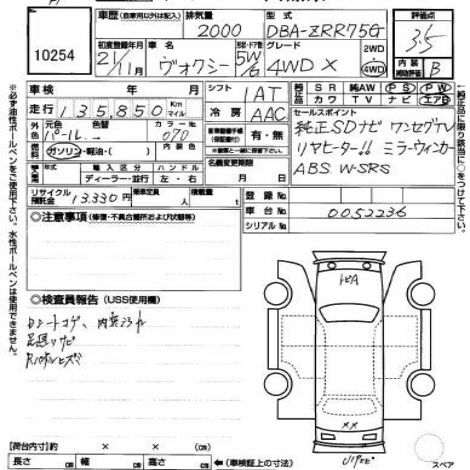 10254
車歴 (自家用以外は記入) 排気量 型式 評価点
2000 DBA-ZRR75G 3.5
初度登録年月 車名 ドア数 グレード 2WD 4WD
21/11月 ヴォクシー 5W/G 4WD X
内装補助評価 B
車検 年 月 シフト 1AT
純正品 SR 純AW PS PW
カワ TV ナビ エアB
走行 135,850 Km マイル 冷房 AAC
セールスポイント
純正SDナビ ワンセグTV
リヤヒーター!! ミラーウィンカー
ABS W-SRS
元色 色替
パール 070
有・無
燃料 ガソリン・軽油・( )
輸入区分 ハンドル
ディーラー・並行 左・右
名義変更期限
年 月 日
リサイクル預託金 13,330円 乗車定員 人 積載量
登録No.
車台No. 0052236
シリアルNo.
○注意事項 (修復・不具合箇所および状態など)
○検査員報告 (USS使用欄)
【荷台内寸】 約 × × (約)
長さ cm 幅 cm 高さ cm ←(車検証上の寸法)
スペア
※必ず油性ボールペンをご使用下さい。水性ボールペンは使用できません。